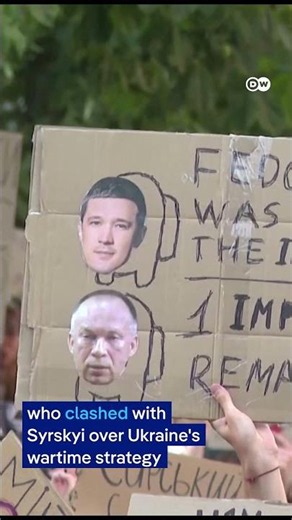 DW
FEDO
WAS
THE I
1 IMP
REMA
who clashed with
Syrskyi over Ukraine's
wartime strategy
СИРСЬКИЙ